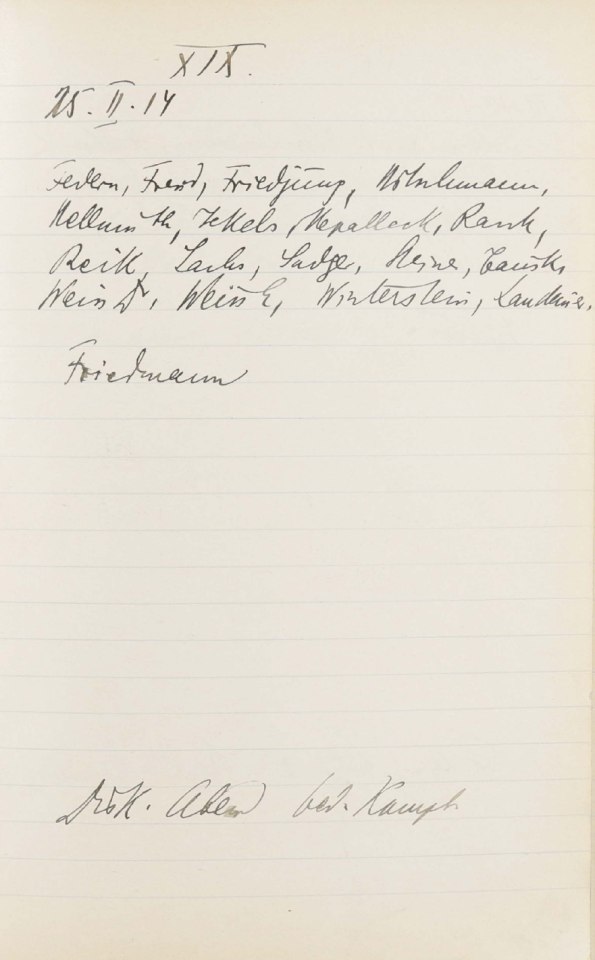 XIX.
25. II. 14
Federn, Freud, Friedjung, Hitschmann,
Hellmuth, Jekels, Nepalleck, Rank,
Reik, Sachs, Sadger, Steiner, Tausk,
Weiss Dr, Weiss K, Winterstein, Landauer.
Friedmann
Disk. Abend